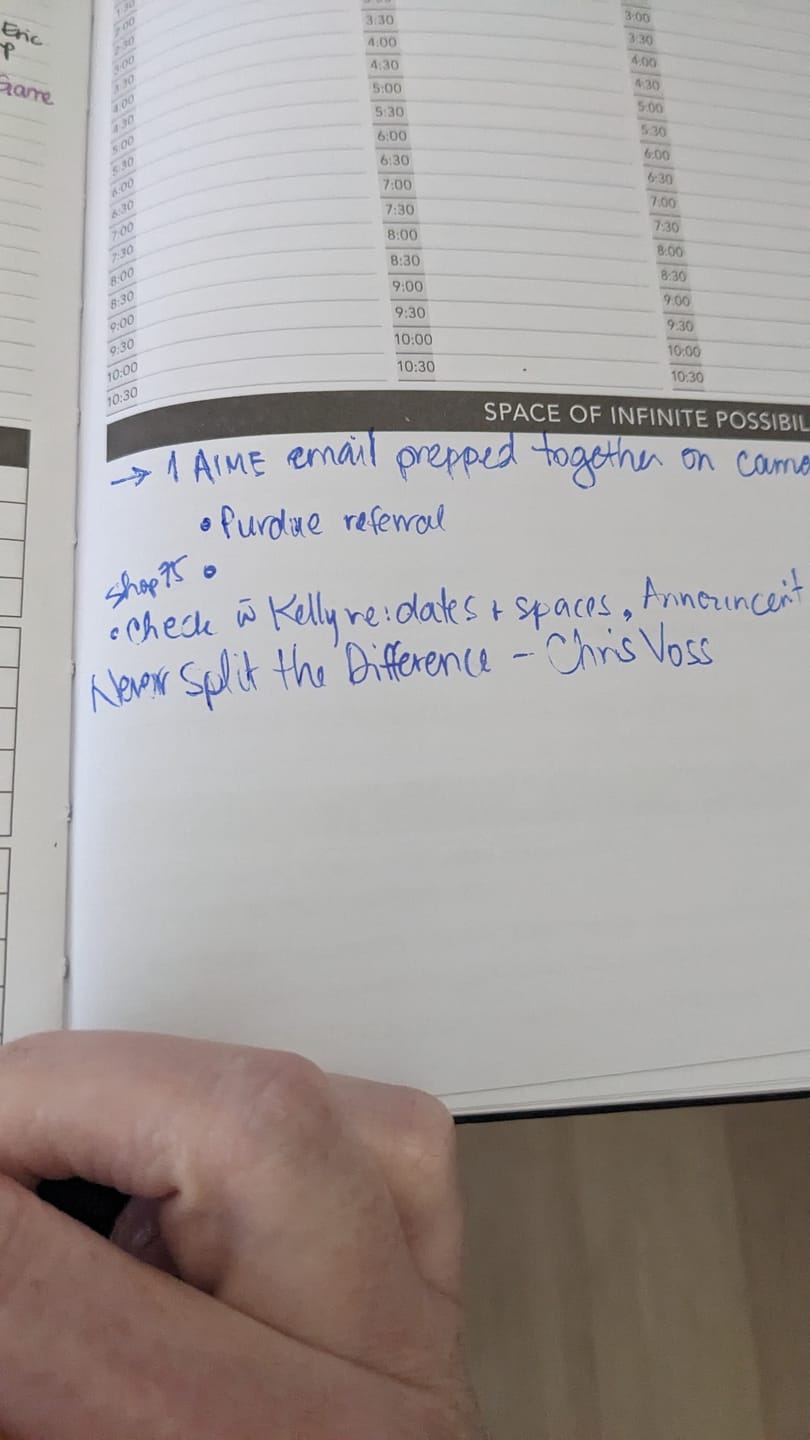 Eric
P
Game
1:30
2:00
2:30
3:00
3:30
4:00
4:30
5:00
5:30
6:00
6:30
7:00
7:30
8:00
8:30
9:00
9:30
10:00
10:30
3:30
4:00
4:30
5:00
5:30
6:00
6:30
7:00
7:30
8:00
8:30
9:00
9:30
10:00
10:30
3:00
3:30
4:00
4:30
5:00
5:30
6:00
6:30
7:00
7:30
8:00
8:30
9:00
9:30
10:00
10:30
SPACE OF INFINITE POSSIBIL
→ 1 AIME email prepped together on came
• Purdue referral
Shop75 •
• Check w̄ Kelly re: dates + spaces,
Never Split the Difference - Chris Voss